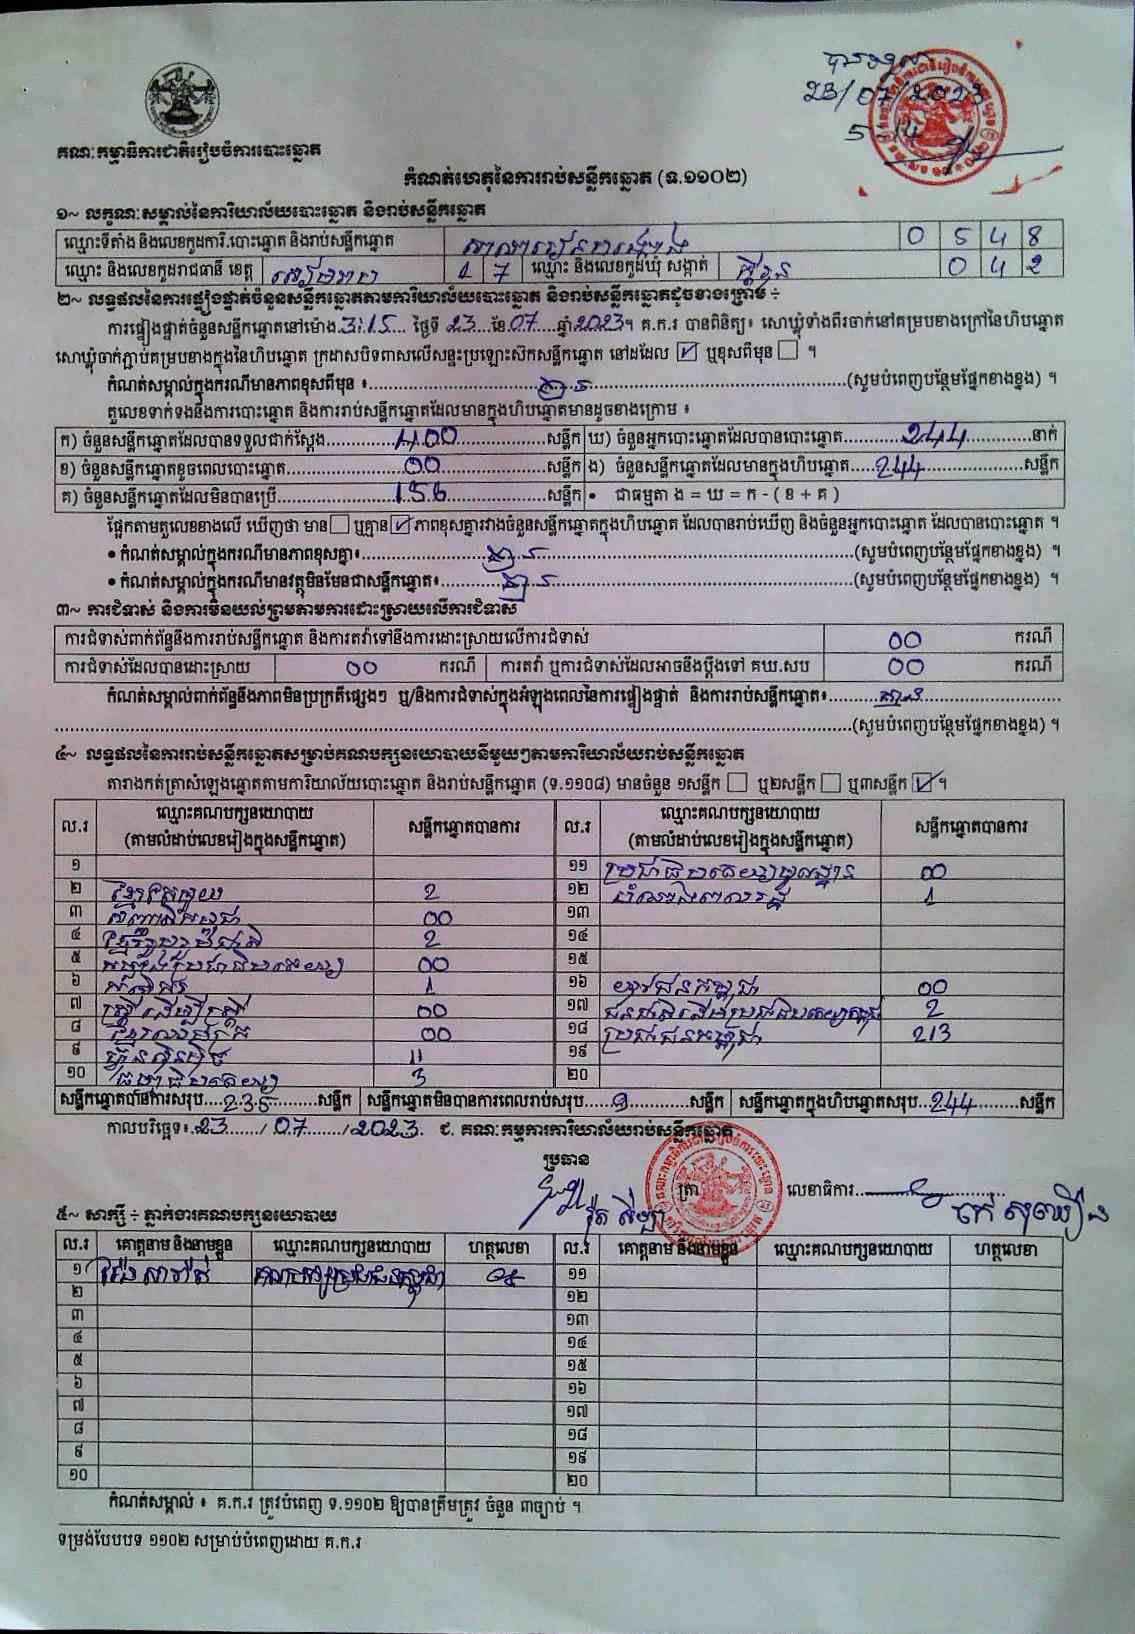 គណៈកម្មាធិការជាតិរៀបចំការបោះឆ្នោត
23/07/2023
កំណត់ហេតុនៃការរាប់សន្លឹកឆ្នោត (ទ.១១០២)
១~ លក្ខណៈសម្គាល់នៃការិយាល័យបោះឆ្នោត និងរាប់សន្លឹកឆ្នោត
ឈ្មោះទីតាំង និងលេខកូដការិ.បោះឆ្នោត និងរាប់សន្លឹកឆ្នោត 0 5 4 8
ឈ្មោះ និងលេខកូដរាជធានី ខេត្ត សៀមរាប 1 7 ឈ្មោះ និងលេខកូដឃុំ សង្កាត់ 0 4 2
២~ លទ្ធផលនៃការផ្ទៀងផ្ទាត់ចំនួនសន្លឹកឆ្នោតតាមការិយាល័យបោះឆ្នោត និងរាប់សន្លឹកឆ្នោតដូចខាងក្រោម ÷
ការផ្ទៀងផ្ទាត់ចំនួនសន្លឹកឆ្នោតនៅម៉ោង 3:15 ថ្ងៃទី 23 ខែ 07 ឆ្នាំ 2023 ។ គ.ក.រ បានពិនិត្យ៖ សោឃ្លុំទាំងពីរចាក់នៅគម្របខាងក្រៅនៃហិបឆ្នោត
សោឃ្លុំចាក់ភ្ជាប់គម្របខាងក្នុងនៃហិបឆ្នោត ក្រដាសបិទពាសលើសន្ទះប្រឡោះស៊កសន្លឹកឆ្នោត នៅដដែល ☑ ឬខុសពីមុន ☐ ។
កំណត់សម្គាល់ក្នុងករណីមានភាពខុសពីមុន ៖ គ្មាន (សូមបំពេញបន្ថែមផ្នែកខាងខ្នង) ។
តួលេខទាក់ទងនឹងការបោះឆ្នោត និងការរាប់សន្លឹកឆ្នោតដែលមានក្នុងហិបឆ្នោតមានដូចខាងក្រោម ៖
ក) ចំនួនសន្លឹកឆ្នោតដែលបានទទួលជាក់ស្តែង 400 សន្លឹក ឃ) ចំនួនអ្នកបោះឆ្នោតដែលបានបោះឆ្នោត 244 នាក់
ខ) ចំនួនសន្លឹកឆ្នោតខូចពេលបោះឆ្នោត 00 សន្លឹក ង) ចំនួនសន្លឹកឆ្នោតដែលមានក្នុងហិបឆ្នោត 244 សន្លឹក
គ) ចំនួនសន្លឹកឆ្នោតដែលមិនបានប្រើ 156 សន្លឹក • ជាធម្មតា ង = ឃ = ក - ( ខ + គ )
ផ្អែកតាមតួលេខខាងលើ ឃើញថា មាន ☐ ឬគ្មាន ☑ ភាពខុសគ្នារវាងចំនួនសន្លឹកឆ្នោតក្នុងហិបឆ្នោត ដែលបានរាប់ឃើញ និងចំនួនអ្នកបោះឆ្នោត ដែលបានបោះឆ្នោត ។
• កំណត់សម្គាល់ក្នុងករណីមានភាពខុសគ្នា៖ គ្មាន (សូមបំពេញបន្ថែមផ្នែកខាងខ្នង) ។
• កំណត់សម្គាល់ក្នុងករណីមានវត្ថុមិនមែនជាសន្លឹកឆ្នោត៖ គ្មាន (សូមបំពេញបន្ថែមផ្នែកខាងខ្នង) ។
៣~ ការជំទាស់ និងការមិនយល់ព្រមតាមការដោះស្រាយលើការជំទាស់
ការជំទាស់ពាក់ព័ន្ធនឹងការរាប់សន្លឹកឆ្នោត និងការតវ៉ាទៅនឹងការដោះស្រាយលើការជំទាស់ 00 ករណី
ការជំទាស់ដែលបានដោះស្រាយ 00 ករណី ការតវ៉ា ឬការជំទាស់ដែលអាចនឹងប្តឹងទៅ គឃ.សប 00 ករណី
កំណត់សម្គាល់ពាក់ព័ន្ធនឹងភាពមិនប្រក្រតីផ្សេងៗ ឬ/និងការជំទាស់ក្នុងអំឡុងពេលនៃការផ្ទៀងផ្ទាត់ និងការរាប់សន្លឹកឆ្នោត៖ គ្មាន
(សូមបំពេញបន្ថែមផ្នែកខាងខ្នង) ។
៤~ លទ្ធផលនៃការរាប់សន្លឹកឆ្នោតសម្រាប់គណបក្សនយោបាយនីមួយៗតាមការិយាល័យរាប់សន្លឹកឆ្នោត
តារាងកត់ត្រាសំឡេងឆ្នោតតាមការិយាល័យបោះឆ្នោត និងរាប់សន្លឹកឆ្នោត (ទ.១១០៨) មានចំនួន ១សន្លឹក ☐ ឬ២សន្លឹក ☐ ឬ៣សន្លឹក ☑ ។
ល.រ ឈ្មោះគណបក្សនយោបាយ (តាមលំដាប់លេខរៀងក្នុងសន្លឹកឆ្នោត) សន្លឹកឆ្នោតបានការ ល.រ ឈ្មោះគណបក្សនយោបាយ (តាមលំដាប់លេខរៀងក្នុងសន្លឹកឆ្នោត) សន្លឹកឆ្នោតបានការ
១ ១១ ប្រជាធិបតេយ្យមូលដ្ឋាន 00
២ ខ្មែរតែមួយ 2 ១២ 1
៣ 00 ១៣
៤ ខ្មែររួបរួមជាតិ 2 ១៤
៥ កម្លាំងប្រជាធិបតេយ្យ 00 ១៥
៦ កសិករ 1 ១៦ យុវជនកម្ពុជា 00
៧ ស្ត្រីដើម្បីស្ត្រី 00 ១៧ ជនជាតិដើមប្រជាធិបតេយ្យកម្ពុជា 2
៨ 00 ១៨ ប្រជាជនកម្ពុជា 213
៩ ហ្វ៊ុនស៊ិនប៉ិច 11 ១៩
១០ ធម្មាធិបតេយ្យ 3 ២០
សន្លឹកឆ្នោតបានការសរុប 235 សន្លឹក សន្លឹកឆ្នោតមិនបានការពេលរាប់សរុប 9 សន្លឹក សន្លឹកឆ្នោតក្នុងហិបឆ្នោតសរុប 244 សន្លឹក
កាលបរិច្ឆេទ៖ 23 / 07 / 2023 ជ. គណៈកម្មការការិយាល័យរាប់សន្លឹកឆ្នោត
ប្រធាន
ត្រា លេខាធិការ
៥~ សាក្សី ÷ ភ្នាក់ងារគណបក្សនយោបាយ
ល.រ គោត្តនាម និងនាមខ្លួន ឈ្មោះគណបក្សនយោបាយ ហត្ថលេខា ល.រ គោត្តនាម និងនាមខ្លួន ឈ្មោះគណបក្សនយោបាយ ហត្ថលេខា
១ គណបក្សប្រជាជនកម្ពុជា ១១
២ ១២
៣ ១៣
៤ ១៤
៥ ១៥
៦ ១៦
៧ ១៧
៨ ១៨
៩ ១៩
១០ ២០
កំណត់សម្គាល់ ៖ គ.ក.រ ត្រូវបំពេញ ទ.១១០២ ឱ្យបានត្រឹមត្រូវ ចំនួន ៣ច្បាប់ ។
ទម្រង់បែបបទ ១១០២ សម្រាប់បំពេញដោយ គ.ក.រ